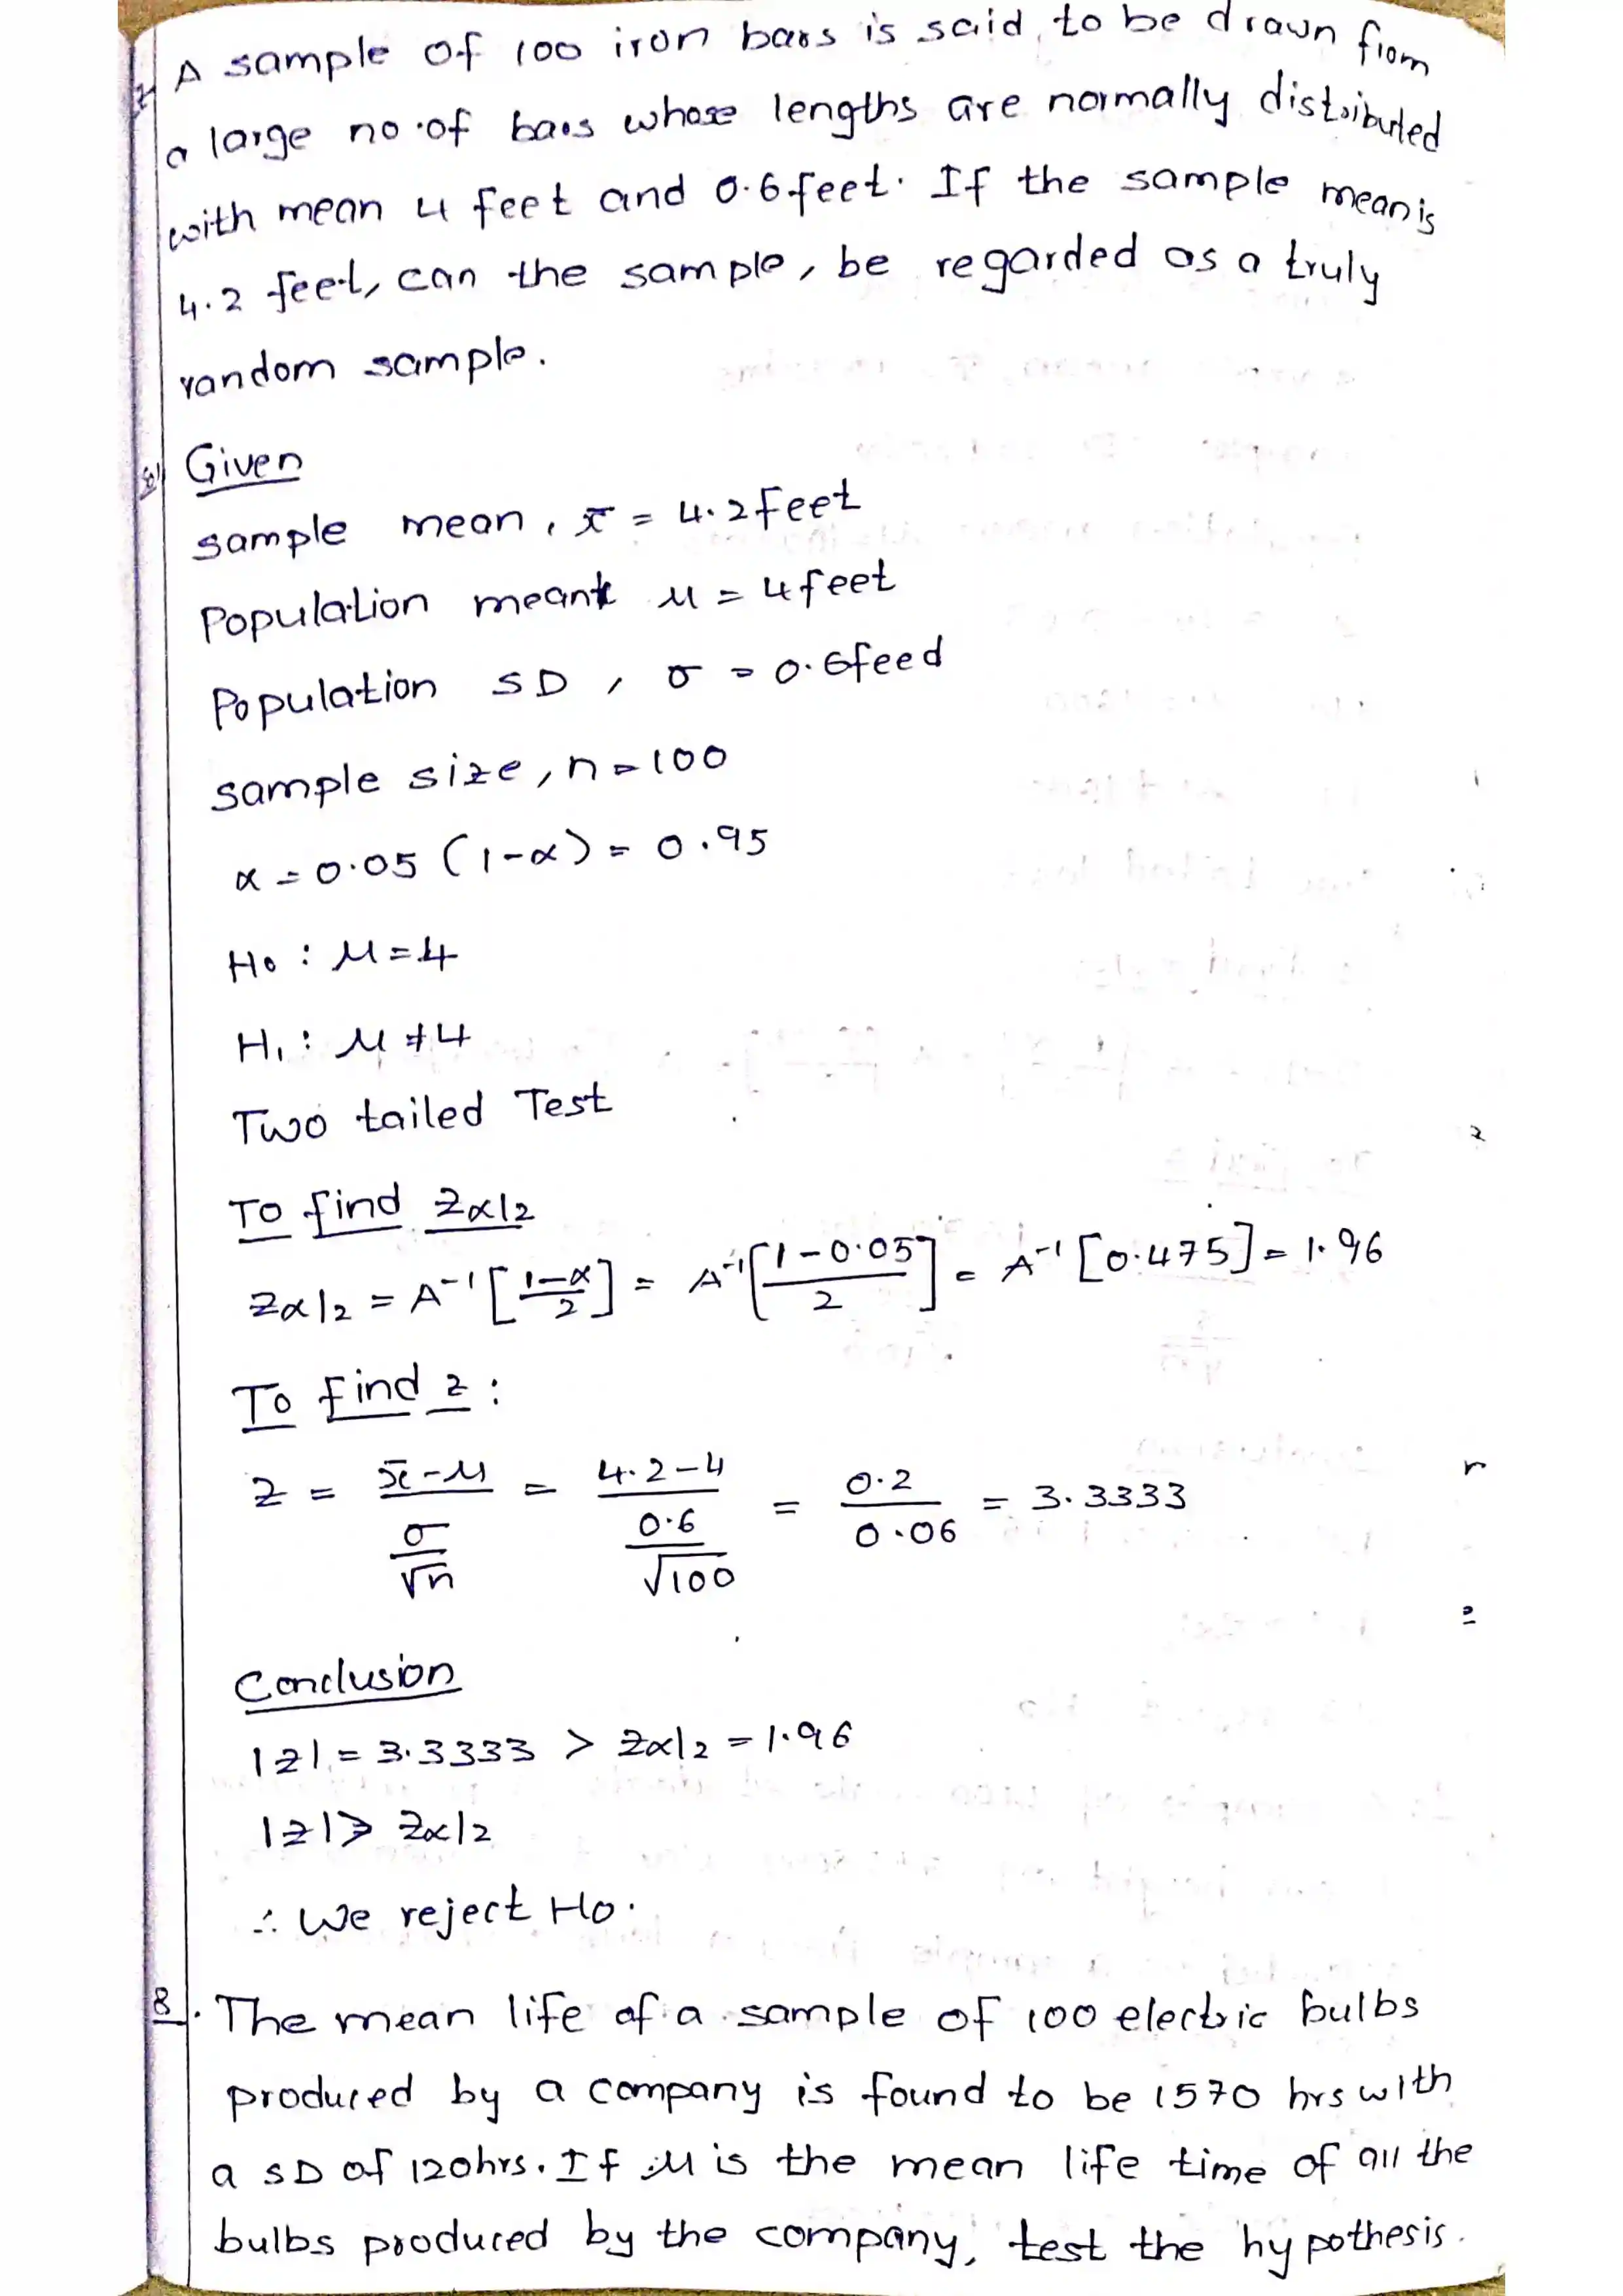 7. A sample of 100 iron bars is said to be drawn from
a large no. of bars whose lengths are normally distributed
with mean 4 feet and 0.6 feet. If the sample mean is
4.2 feet, can the sample, be regarded as a truly
random sample.
Given
sample mean, x̄ = 4.2 feet
Population mean μ = 4 feet
Population SD, σ = 0.6 feed
sample size, n = 100
α = 0.05 (1-α) = 0.95
H₀ : μ = 4
H₁ : μ ≠ 4
Two tailed Test
To find Zα/2
Zα/2 = A⁻¹[(1-α)/2] = A⁻¹[(1-0.05)/2] = A⁻¹[0.475] = 1.96
To find z :
z = (x̄-μ)/(σ/√n) = (4.2-4)/(0.6/√100) = 0.2/0.06 = 3.3333
Conclusion
|z| = 3.3333 > Zα/2 = 1.96
|z| > Zα/2
∴ We reject H₀.
8. The mean life of a sample of 100 electric bulbs
produced by a company is found to be 1570 hrs with
a SD of 120hrs. If μ is the mean life time of all the
bulbs produced by the company, test the hypothesis.